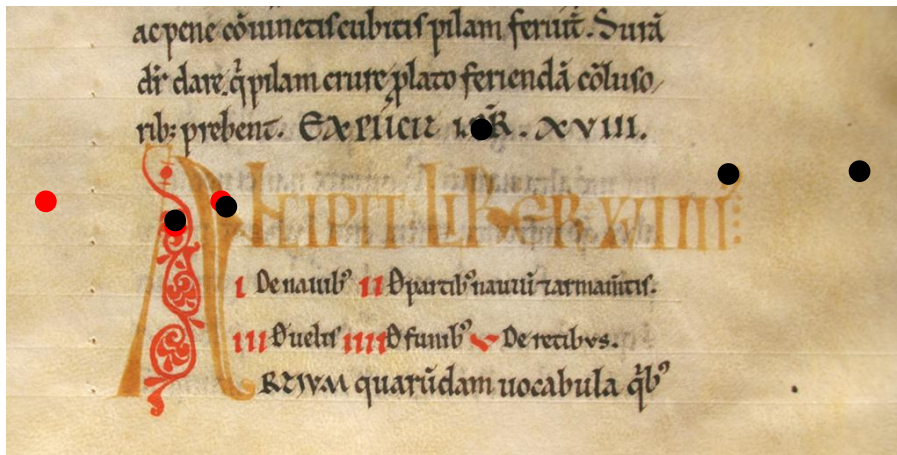 ac pene cōiunctis cubitis pilam feriūt. Surā
dr̄ dare. q̄ pilam crure plato feriendā cōluso
rib; prebent. EXPLICIT LIB̄R. XVIII.
INCIPIT LIBER XVIIII
I De nauibꝰ II D̄ partibꝰ nauiū ⁊ armam̄tis.
III D̄ uelis IIII D̄ funibꝰ V De retibus.
ARTIUM quarūdam uocabula q̄bꝰ